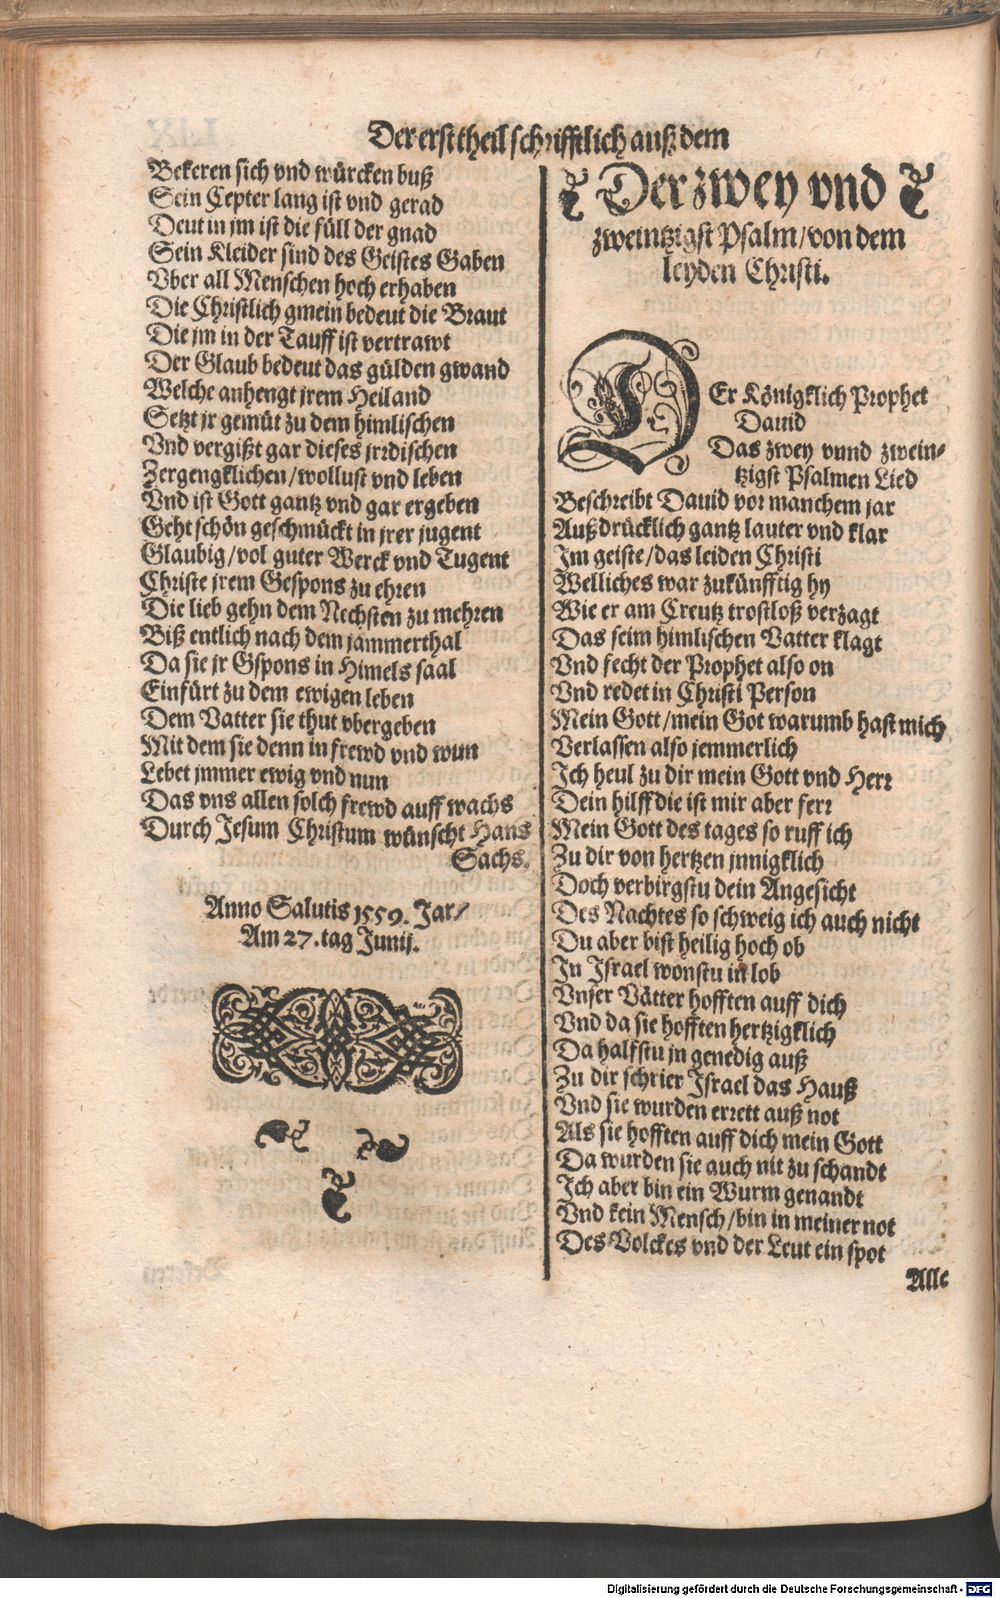 Der erst theil schrifftlich auß dem
Bekeren sich vnd würcken buß
Sein Cepter lang ist vnd gerad
Deut in jm ist die füll der gnad
Sein Kleider sind des Geistes Gaben
Vber all Menschen hoch erhaben
Die Christlich gmein bedeut die Braut
Die jm in der Tauff ist vertrawt
Der Glaub bedeut das gülden gwand
Welche anhengt jrem Heiland
Setzt jr gemüt zu dem himlischen
Vnd vergißt gar dieses jrrdischen
Zergengklichen/wollust vnd leben
Vnd ist Gott gantz vnd gar ergeben
Geht schön geschmückt in jrer jugent
Glaubig/vol guter Werck vnd Tugent
Christe jrem Gespons zu ehren
Die lieb gehn dem Nechsten zu mehren
Biß entlich nach dem jammerthal
Da sie jr Gspons in Himels saal
Einfürt zu dem ewigen leben
Dem Vatter sie thut vbergeben
Mit dem sie denn in frewd vnd wun
Lebet jmmer ewig vnd nun
Das vns allen solch frewd auff wachs
Durch Jesum Christum wünscht Hans
Sachs.
Anno Salutis 1559. Jar/
Am 27. tag Junij.
Der zwey vnd
zweintzigst Psalm/von dem
leyden Christi.
DEr Königklich Prophet
Dauid
Das zwey vnnd zwein-
tzigst Psalmen Lied
Beschreibt Dauid vor manchem jar
Außdrücklich gantz lauter vnd klar
Im geiste/das leiden Christi
Welliches war zukünfftig hy
Wie er am Creutz trostloß verzagt
Das seim himlischen Vatter klagt
Vnd fecht der Prophet also on
Vnd redet in Christi Person
Mein Gott/mein Got warumb hast mich
Verlassen also jemmerlich
Ich heul zu dir mein Gott vnd Herr
Dein hilff die ist mir aber ferr
Mein Gott des tages so ruff ich
Zu dir von hertzen jnnigklich
Doch verbirgstu dein Angesicht
Des Nachtes so schweig ich auch nicht
Du aber bist heilig hoch ob
In Israel wonstu in lob
Vnser Vätter hofften auff dich
Vnd da sie hofften hertzigklich
Da halfstu jn genedig auß
Zu dir schrier Israel das Hauß
Vnd sie wurden errett auß not
Als sie hofften auff dich mein Gott
Da wurden sie auch nit zu schandt
Ich aber bin ein Wurm genandt
Vnd kein Mensch/bin in meiner not
Des Volckes vnd der Leut ein spot
Alle
Digitalisierung gefördert durch die Deutsche Forschungsgemeinschaft - DFG